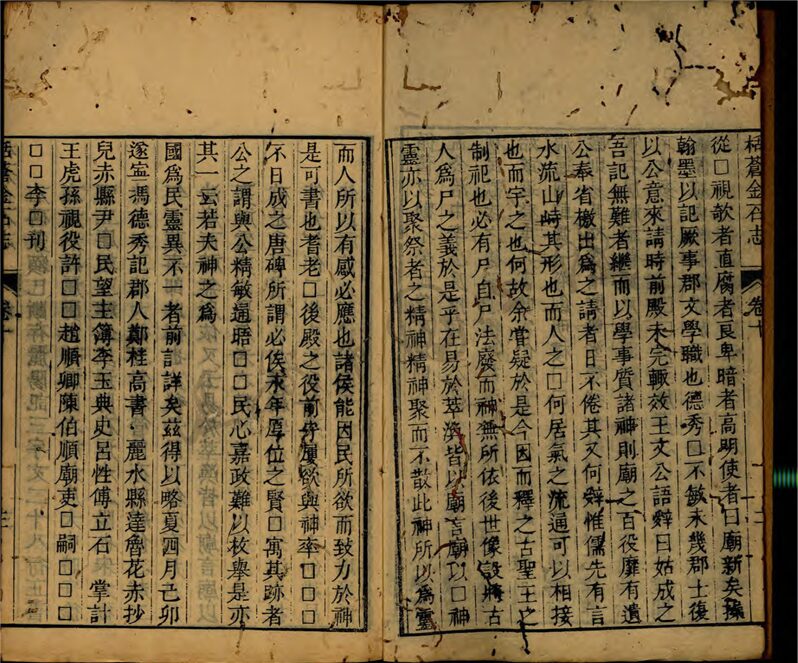 栝蒼金石志 卷十 十二
從□視欹者直腐者良卑暗者高明使者曰廟新矣豫
翰墨以記厥事郡文學職也德秀□不敏未幾郡士復
以公意來請時前殿未完輙效王文公語辭曰姑成之
吾記無難者繼而以學事質諸神則廟之百役靡有遺
公奉省檄出為之請者日不倦其又何辭惟儒先有言
水流山峙其形也而人之□何居氣之流通可以相接
也而宇之也何故余嘗疑於是今因而釋之古聖王之
制祀也必有尸自尸法廢而神無所依後世像設將古
人為尸之義於是乎在易於萃渙皆以廟言廟以□神
靈亦以聚祭者之精神精神聚而不散此神所以為靈
而人所以有感必應也諸侯能因民所欲而致力於神
是可書也耆老□後殿之役前守厦欲與神率□□□
不日成之唐碑所謂必俟永年厚位之賢□寓其跡者
公之謂與公精敏通晤□□民心嘉政難以枚舉是亦
其一云若夫神之為
國為民靈異不一者前記詳矣茲得以略夏四月己卯
遂寧馮德秀記郡人鄭桂高書 麗水縣達魯花赤抄
兒赤縣尹□民望主簿李玉典史呂性傅立石 掌計
王虎孫視役許□□趙順卿陳伯順廟吏□嗣□□□
□□李□刊
栝蒼金石志 卷十